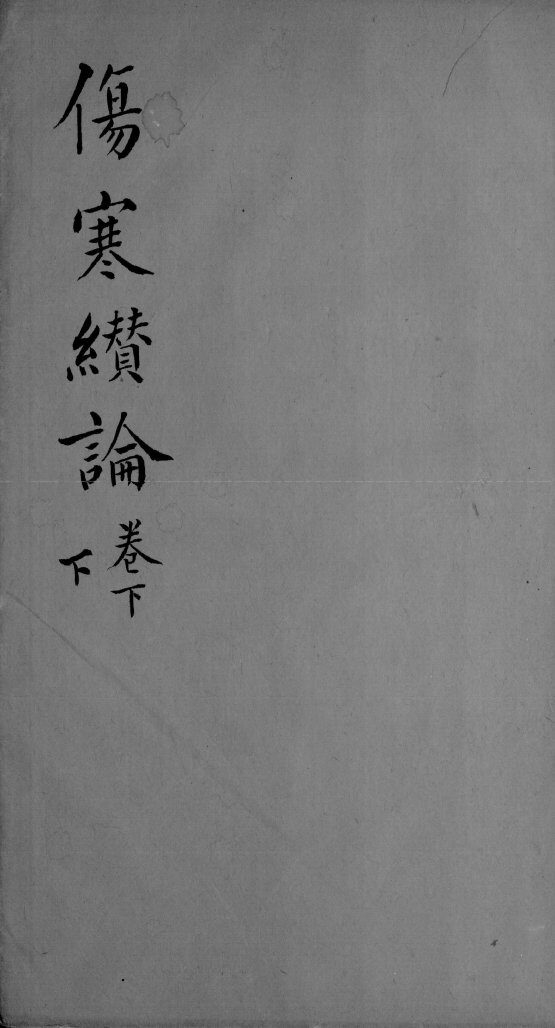 傷寒纉論
卷下
下